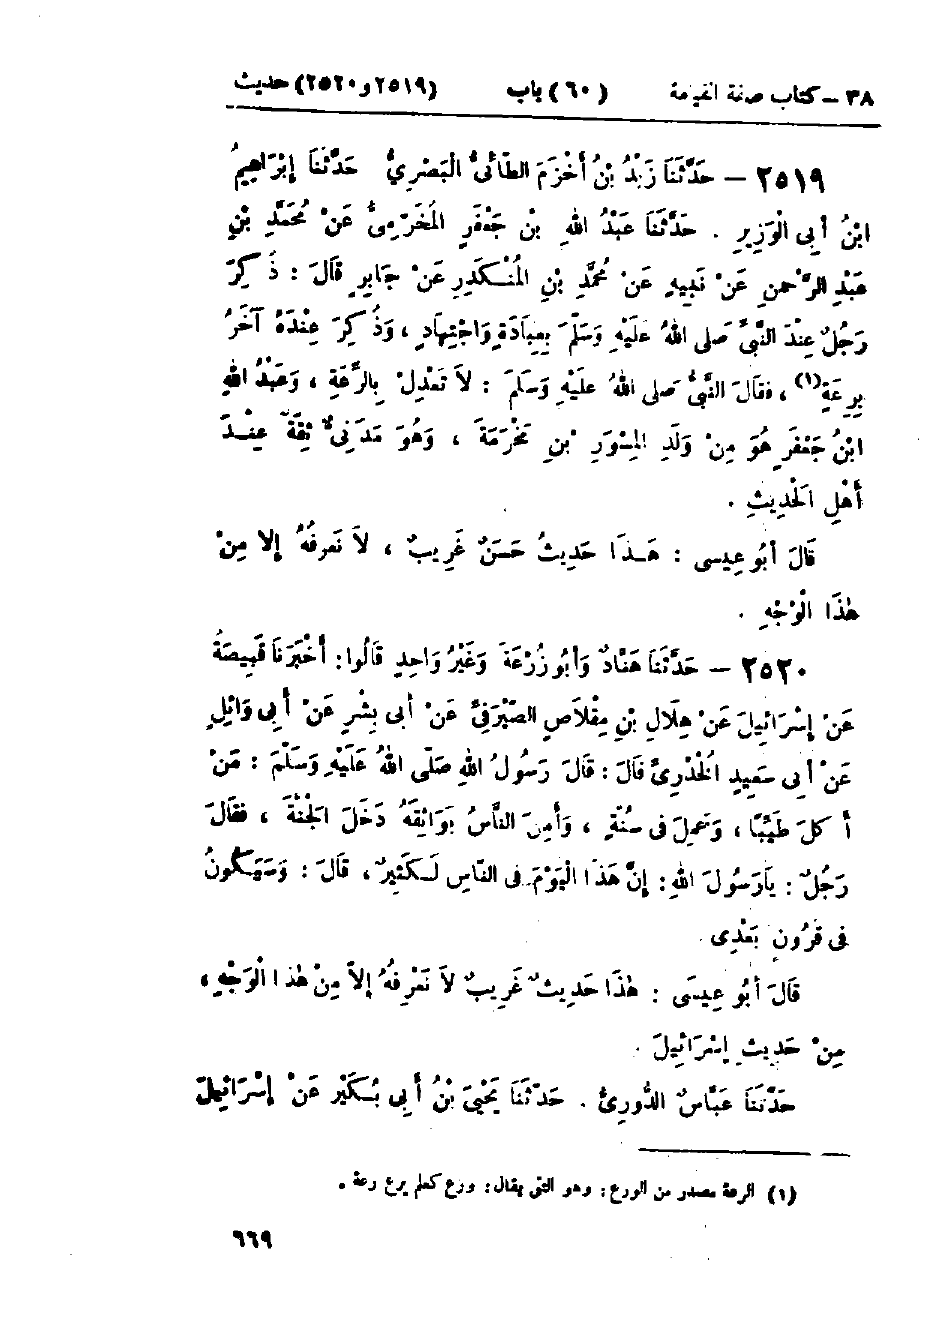 ٣٨ – كتاب صفة القيامة (٦٠) باب (٢٥١٩ و ٢٥٢٠) حديث
٢٥١٩ – حَدَّثَنَا زَيْدُ بْنُ أَخْزَمَ الطَّائىُّ الْبَصْرِيُّ حَدَّثَنَا إبْرَاهِيمُ
ابْنُ أبِى الْوَزِيرِ . حَدَّثَنَا عَبْدُ اللهِ بْنُ جَعْفَرٍ الْمُخَرّمِىُّ عَنْ مُحَمَّدِ بْنِ
عَبْدِ الرَّحْمنِ عَنْ نَبِيهٍ عَنْ مُحَمَّدِ بْنِ الْمُنْكَدِرِ عَنْ جَابِرٍ قَالَ : ذُكِرَ
رَجُلٌ عِنْدَ النَّبِىِّ صَلى اللهُ عَلَيْهِ وَسَلّمَ بِعِبَادَةٍ وَاجْتِهَادٍ ، وَذُكِرَ عِنْدَهُ آخَرُ
بِرِعَةٍ(١) ، فقَالَ النَّبِىُّ صَلى اللهُ عَلَيْهِ وَسَلمَ : لاَ تَعْدِلْ بِالرَّعَةِ ، وَعَبْدُ اللهِ
ابْنُ جَعْفَرٍ هُوَ مِنْ وَلَدِ الْمِسْوَرِ بْنِ مَخْرَمَةَ ، وَهُوَ مَدَنِىٌّ ثِقَةٌ عِنْدَ
أَهْلِ الْحَدِيثِ .
قَالَ أبُو عِيسى : هَذَا حَدِيثُ حَسَنٌ غَرِيبٌ ، لاَ نَعرِفُهُ إلا مِنْ
هٰذَا الْوَجْهِ .
٢٥٢٠ – حَدَّثَنَا هَنَّادٌ وَأبُو زُرْعَةَ وَغَيْرُ وَاحِدٍ قَالُوا : أَخْبَرَنَا قَبِيصَةُ
عَنْ إسْرَائِيلَ عَنْ هِلاَلِ بْنِ مِقْلاَصٍ الصَّيْرَفِىِّ عَنْ أبى بِشْرٍ عَنْ أبِى وَائِلٍ
عَنْ أبِى سَعِيدٍ الْخُدْرِىِّ قَالَ : قَالَ رَسُولُ اللهِ صَلّى اللهُ عَلَيْهِ وَسَلّمَ : مَنْ
أكَلَ طَيِّبًا ، وَعَمِلَ فى سُنَّةٍ ، وَأَمِنَ النَّاسُ بَوَائِقَهُ دَخَلَ الْجَنَّةَ ، فقَالَ
رَجُلٌ : يَارَسُولَ اللهِ : إنَّ هَذَا الْيَوْمَ فى النَّاسِ لَكَثِيرٌ ، قَالَ : وَسَيَكُونُ
فِى قُرُونٍ بَعْدِى .
قَالَ أبُو عِيسَى : هٰذَا حَدِيثٌ غَرِيبٌ لاَ نَعْرِفُهُ إلاّ مِنْ هٰذَا الْوَجْهِ ،
مِنْ حَدِيثِ إسْرَائِيلَ .
حَدَّثَنَا عَبَّاسٌ الدُّورِىُّ . حَدَّثَنَا يَحْيَ بْنُ أبِى بُكَيْرٍ عَنْ إسْرَائِيلَ
(١) الرعة مصدر من الورع : وهو التقى يقال : ورع كعلم يرع رعة .
٦٦٩